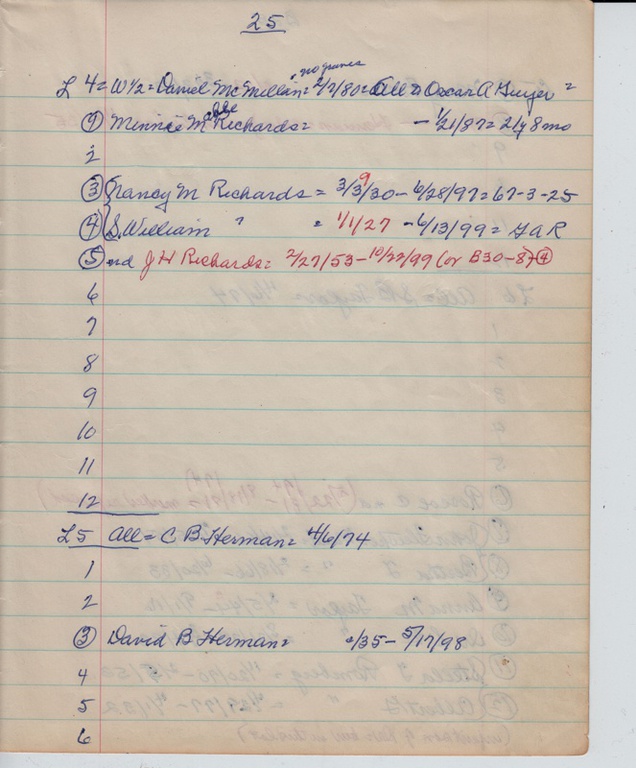 25
no graves
L 4 = W 1/2 = Daniel McMillan = 2/7/80 = All = Oscar A Guyer =
① Minnie Mabbe Richards = - 1/21/87 = 21y 8mo
2
③ Nancy M Richards = 3/3/30 - 6/28/97 = 67-3-25
9
④ S. William " = 1/1/27 - 6/13/99 = GAR
⑤ nd J H Richards = 2/27/53 - 10/22/99 (or B30-87) ④
6
7
8
9
10
11
12
L5 All = C B Herman = 4/6/74
1
2
③ David B Herman = /35 - 5/17/98
4
5
6